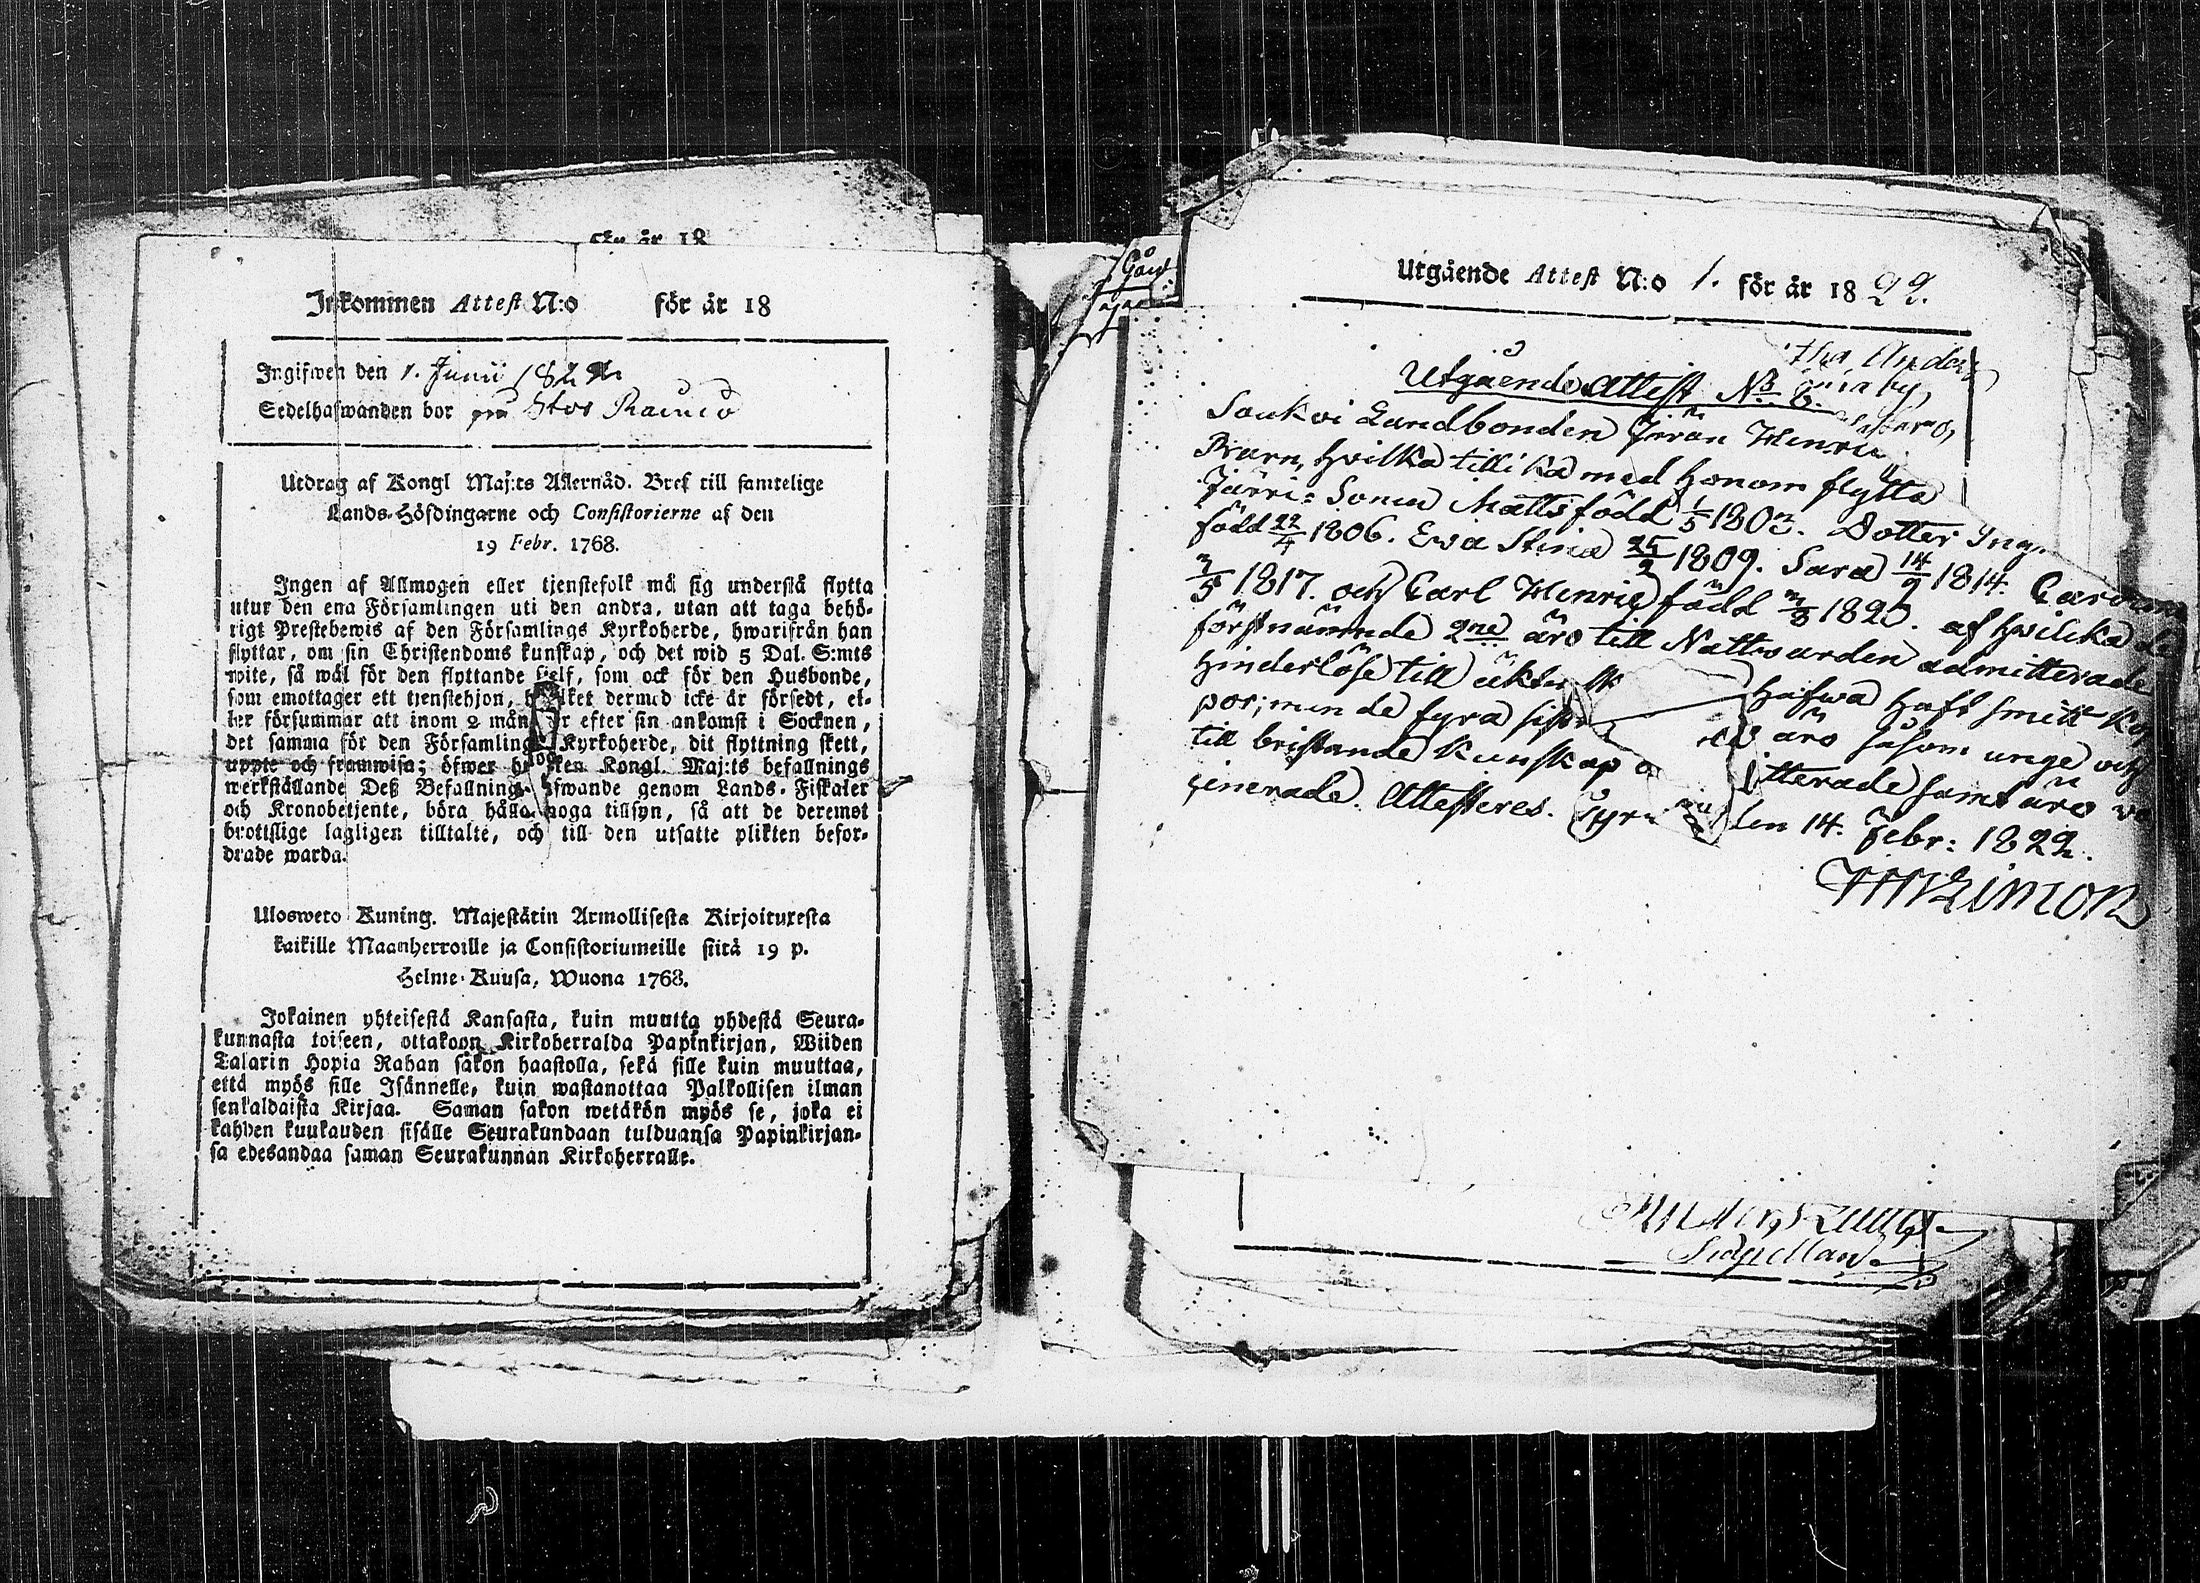 för år 18
Inkommen Attest N:o för år 18
Ingifwen den 1. Junii 182
Sedelhafwanden bor på Stor Raumo
Utdrag af Kongl Maj:ts Allernåd. Bref till samtelige
Lands-Höfdingarne och Consistorierne af den
19 Febr. 1768.
Ingen af Allmogen eller tjenstefolk må sig understå flytta
utur den ena Församlingen uti den andra, utan att taga behö-
rigt Prestebewis af den Församlings Kyrkoherde, hwarifrån han
flyttar, om sin Christendoms kunskap, och det wid 5 Dal. S:mts
wite, så wäl för den flyttande sielf, som ock för den Husbonde,
som emottager ett tjenstehjon, hwilket dermed icke är försedt, el-
ler försummar att inom 2 månader efter sin ankomst i Socknen,
det samma för den Församlings Kyrkoherde, dit flyttning skett,
uppte och framwisa; öfwer hwilken Kongl. Maj:ts befallnings
werkställande Deß Befallningshafwande genom Lands-Fiskaler
och Kronobetjente, böra hålla noga tillsyn, så att de deremot
brottslige lagligen tilltalte, och till den utsatte plikten befor-
drade warda.
Uloswето Kuning. Majestätin Armollisesta Kirjoituxesta
kaikille Maanherroille ja Consistoriumeille siitä 19 p.
Helme-Kuusa, Wuona 1768.
Jokainen yhteisestä Kansasta, kuin muutta yhdestä Seura-
kunnasta toiseen, ottakoon Kirkoherralda Papinkirjan, Wiiden
Talarin Hopia Rahan sakon haastolla, sekä sille kuin muuttaa,
että myös sille Isännelle, kuin wastanottaa Palkollisen ilman
senkaldaista Kirjaa. Saman sakon wetäkön myös se, joka ei
kahden kuukauden sisälle Seurakundaan tulduansa Papinkirjan-
sa edesandaa saman Seurakunnan Kirkoherralle.
Utgående Attest N:o 1. för år 1822.
Utgående Attest No 6.
Soukvi Landbonden Jöran Henri
Barn, hvilka tillika med honom flytta
Järri: Sonen Matts född 1/5 1803. Dotter Ing
född 22/4 1806. Ewa Stina 25/2 1809. Sara 14/9 1814. Carolin
3/5 1817. och Carl Henric född 3/8 1820. af hwilcka de
förstnämnde 2ne äro till Nattwarden admitterade
hinderlöse till äkten hafwa haft smitt kop
por; men de fyra sist äro såsom unge och
till bristande kunskap itterade samt äro va
cinerade. Attesteres. Tyr den 14. Febr: 1822.